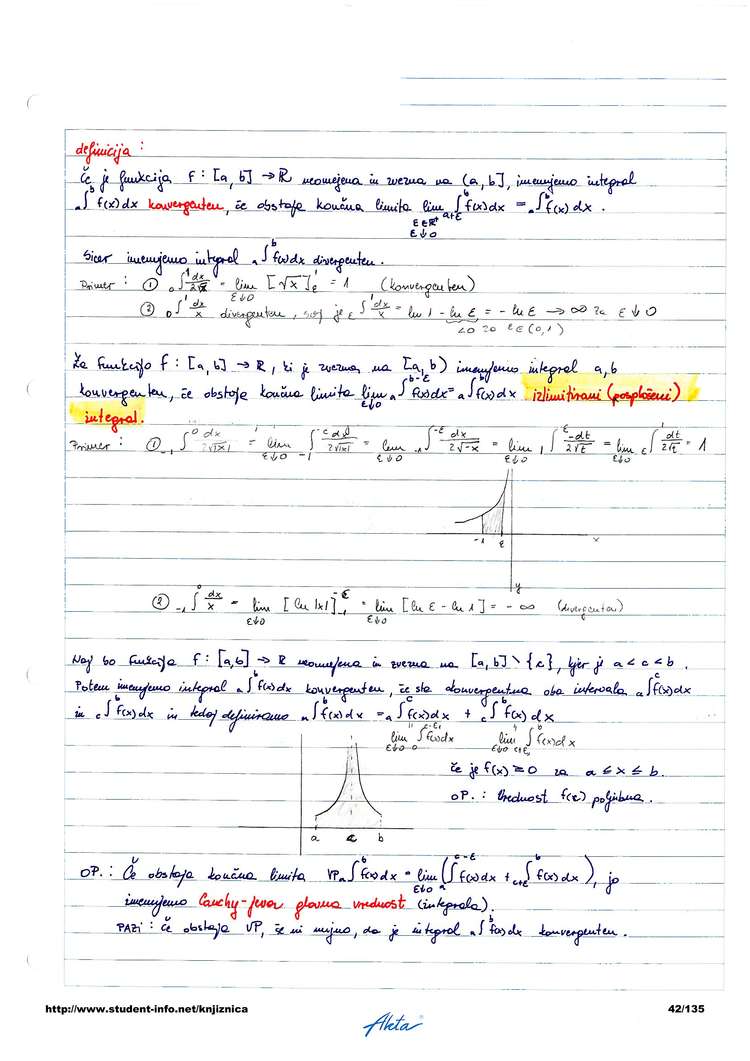 definicija :
Če je funkcija f : [a, b] → R neomejena in zvezna na (a, b], imenujemo integral
ₐ∫ᵇ f(x) dx konvergenten, če obstaja končna limita lim ₐ₊ε∫ᵇ f(x) dx = ₐ∫ᵇ f(x) dx .
ε∈R⁺
ε↓0
Sicer imenujemo integral ₐ∫ᵇ f(x) dx divergenten .
Primer : ① ₀∫¹ dx/2√x = lim [√x]ε¹ = 1 (konvergenten)
ε↓0
② ₀∫¹ dx/x divergenten, saj je ε∫¹ dx/x = ln 1 - ln ε = - ln ε → ∞ za ε↓0
<0 za ε∈(0,1)
Za funkcijo f : [a, b] → R, ki je zvezna na [a, b) imenujemo integral a, b
konvergenten, če obstaja končna limita lim ₐ∫ᵇ⁻ᵋ f(x) dx = ₐ∫ᵇ f(x) dx izlimitirani (posplošeni)
ε↓0
integral.
Primer : ① ₋₁∫⁰ dx/2√|x| = lim ₋₁∫⁻ᵋ dx/2√|x| = lim ₋₁∫⁻ᵋ dx/2√-x = lim ₁∫ᵋ -dt/2√t = lim ε∫¹ dt/2√t = 1
ε↓0 ε↓0 ε↓0 ε↓0
-1 ε x
y
② ₋₁∫⁰ dx/x = lim [ln |x|]₋₁⁻ᵋ = lim [ln ε - ln 1] = - ∞ (divergenten)
ε↓0 ε↓0
Naj bo funkcija f : [a, b] → R neomejena in zvezna na [a, b] \ {c}, kjer je a < c < b .
Potem imenujemo integral ₐ∫ᵇ f(x) dx konvergenten, če sta konvergentna oba intervala ₐ∫ᶜ f(x) dx
in c∫ᵇ f(x) dx in tedaj definiramo ₐ∫ᵇ f(x) dx = ₐ∫ᶜ f(x) dx + c∫ᵇ f(x) dx
lim ∫ f(x) dx lim ∫ᵇ f(x) dx
če je f(x) ≥ 0 za a ≤ x ≤ b.
OP. : Vrednost f(c) poljubna .
a c b
OP. : Če obstaja končna limita VPₐ∫ᵇ f(x) dx = lim (ₐ∫ᶜ⁻ᵋ f(x) dx + c+ε∫ᵇ f(x) dx), jo
ε↓0
imenujemo Cauchy-jeva glavna vrednost (integrala).
PAZI : če obstaja VP, še ni nujno, da je integral ₐ∫ᵇ f(x) dx konvergenten .
http://www.student-info.net/knjiznica
42/135
Akta